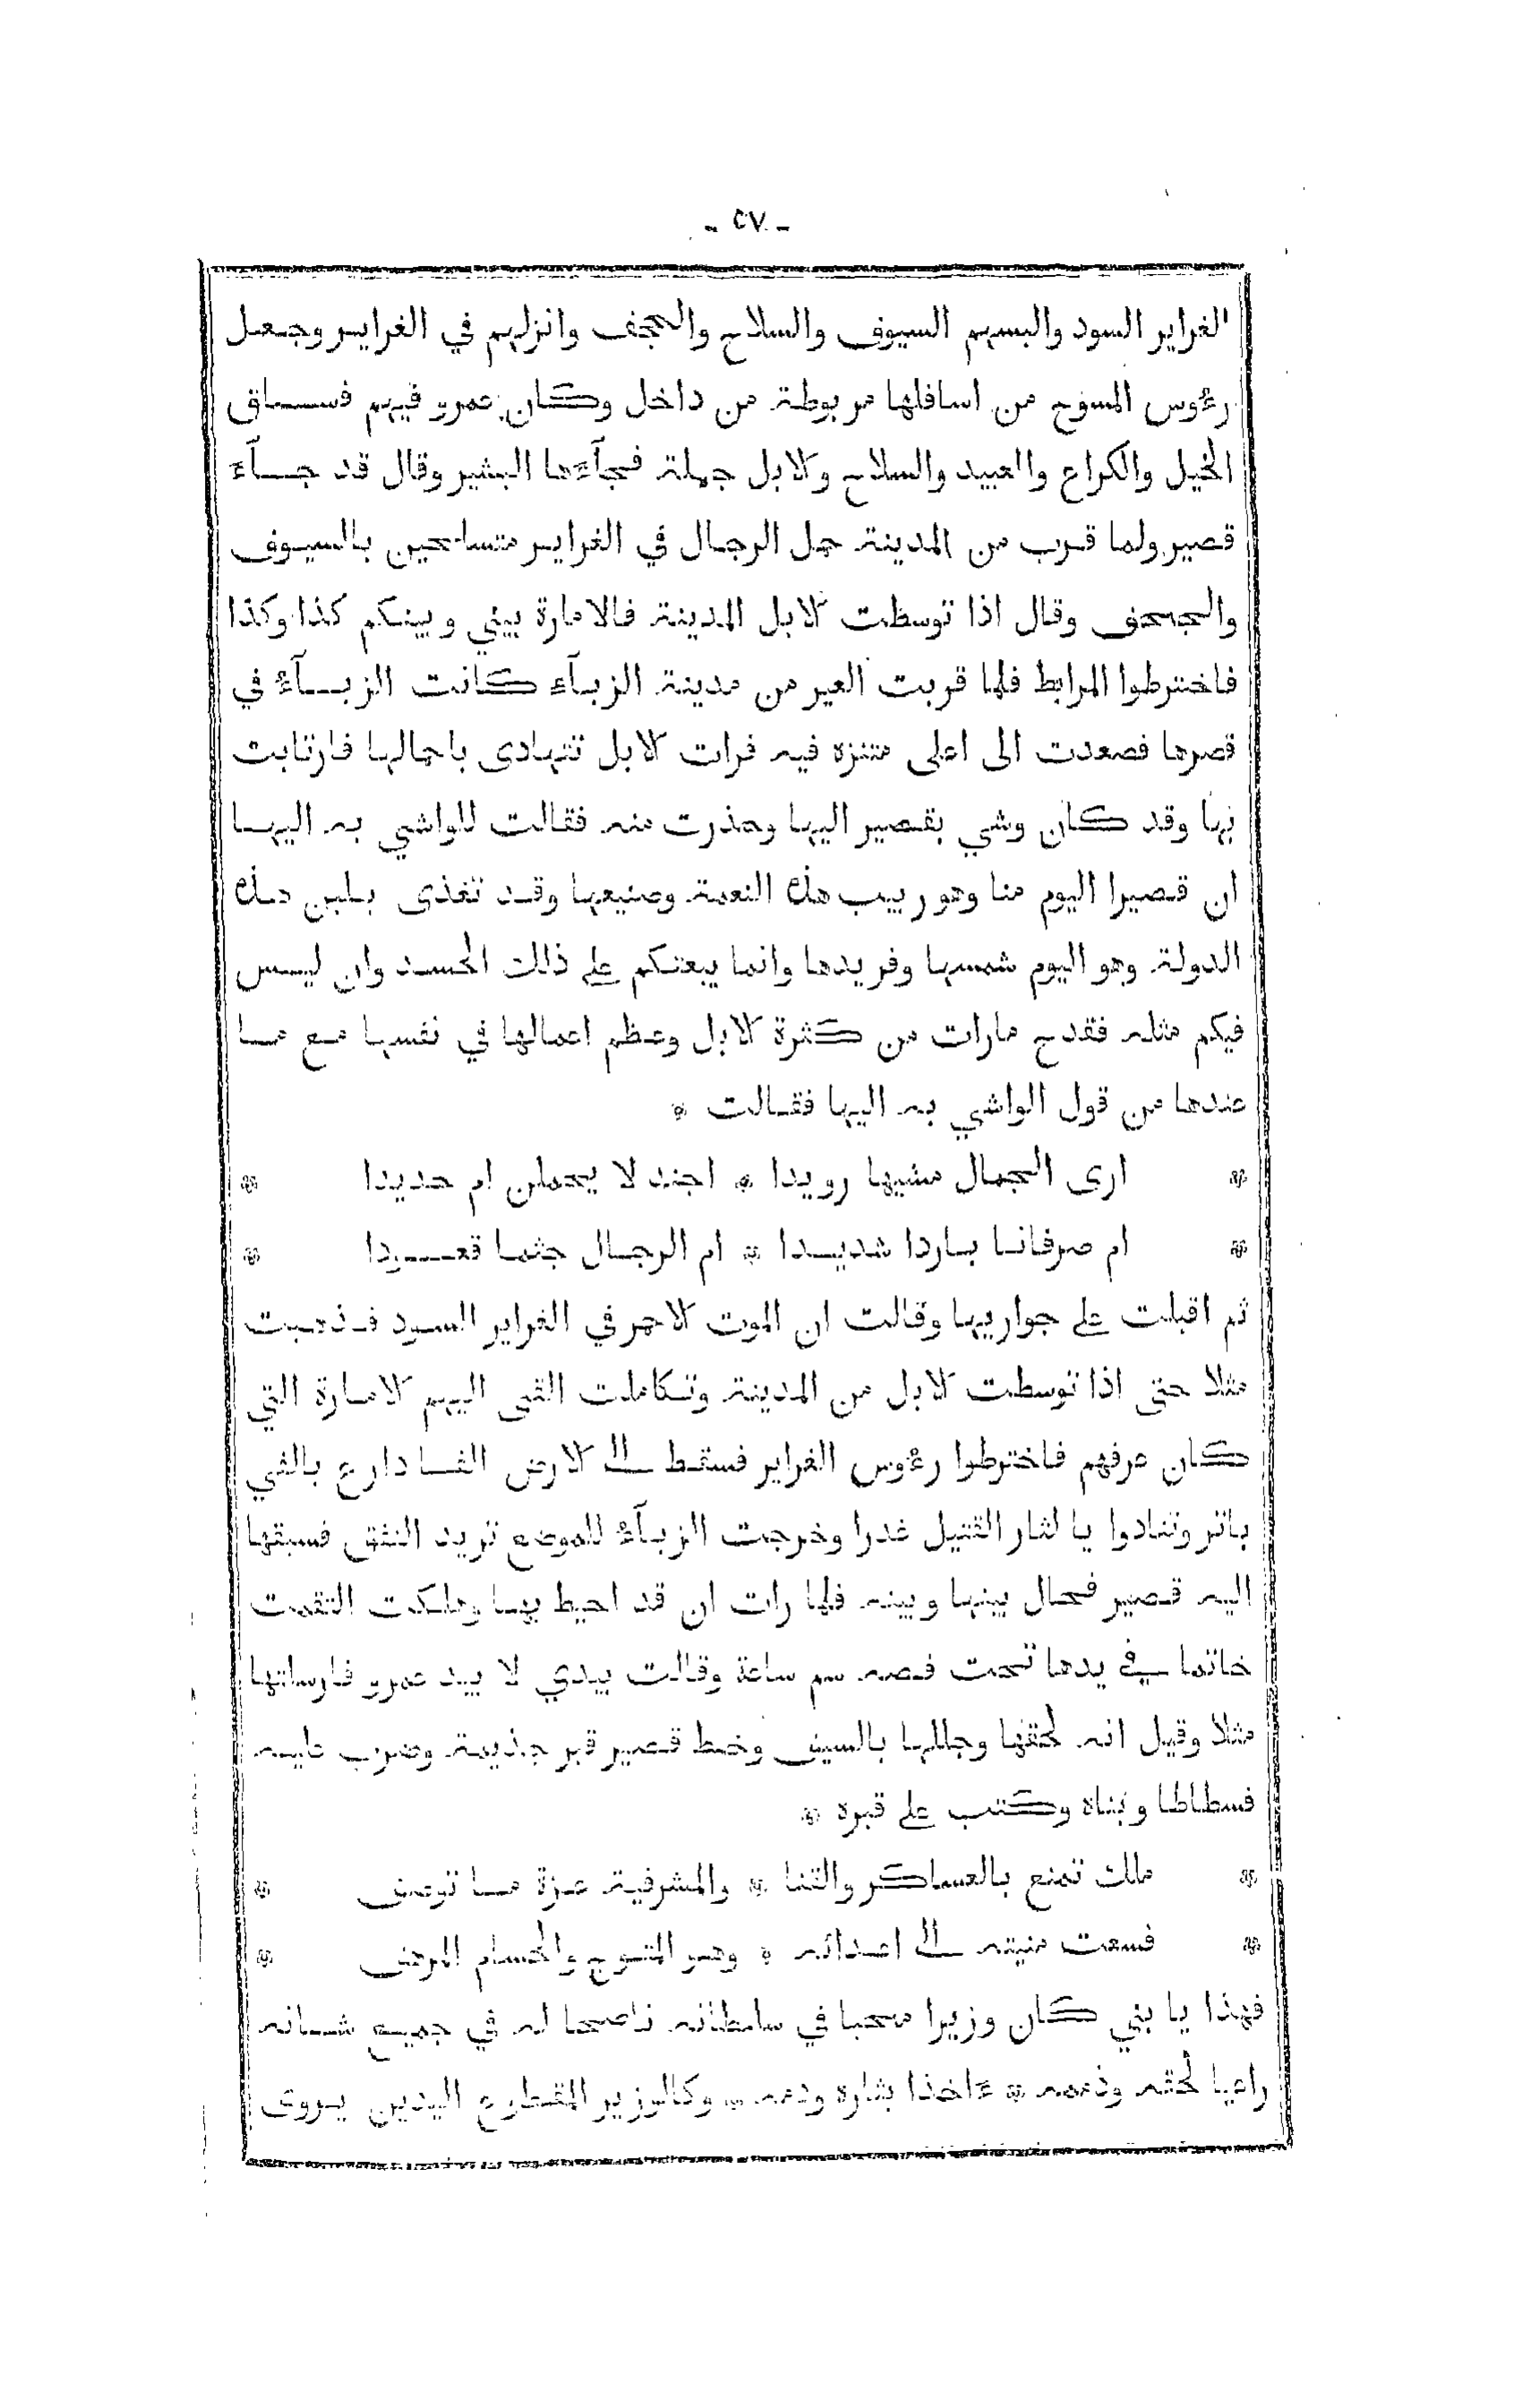 - ٥٧ -
الغراير السود والبسهم السيوف والسلاح والحجف وانزلهم في الغراير وجعل
رءوس المسوح من اسافلها مربوطة من داخل وكان عمرو فيهم فساق
الخيل والكراع والعبيد والسلاح والابل جملة فجآءها البشير وقال قد جآء
قصير ولما قرب من المدينة حمل الرجال في الغراير متسلحين بالسيوف
والجحف وقال اذا توسطت الابل المدينة فالامارة بيني وبينكم كذا وكذا
فاخترطوا المرابط فلما قربت العير من مدينة الزبآء كانت الزبآء في
قصرها فصعدت الى اعلى متنزه فيه فرات الابل تتهادى باحمالها فارتابت
بها وقد كان وشي بقصير اليها وحذرت منه فقالت للواشي به اليها
ان قصيرا اليوم منا وهو ربيب هذه النعمة وصنيعها وقد تغذى بلبن هذه
الدولة وهو اليوم شمسها وفريدها وانما يبعثكم على ذلك الحسد وان ليس
فيكم مثله فقدح مارات من كثرة الابل وعظم اعمالها في نفسها مع ما
عندها من قول الواشي به اليها فقالت *
* ارى الجمال مشيها رويدا * اجندلا يحملن ام حديدا *
* ام صرفانا باردا شديدا * ام الرجال جثما قعودا *
ثم اقبلت على جواريها وقالت ان الموت الاحمر في الغراير السود فذهبت
مثلا حتى اذا توسطت الابل من المدينة وتكاملت القى اليهم الامارة التي
كان عرفهم فاخترطوا رءوس الغراير فسقط الى الارض الفا دارع بالفي
باتر وتنادوا يا لثار القتيل غدرا وخرجت الزبآء للموضع تريد النفق فسبقها
اليه قصير فحال بينها وبينه فلما رات ان قد احيط بها وملكت التقمت
خاتما في يدها تحت فصه سم ساعة وقالت بيدي لا بيد عمرو فارسلتها
مثلا وقيل انه لحقها وجللها بالسيف وخط قصير قبر جذيمة وضرب عليه
فسطاطا وبناه وكتب على قبره *
* ملك تمنع بالعساكر والقنا * والمشرفية عزة ما توصف *
* فسعت منيته الى اعدائه * وهو المتوج والحسام المرهف *
فهذا يا بني كان وزيرا محبا في سلطانه ناصحا له في جميع شانه
راعيا لحقه وذممه * ءاخذا بثاره ودمه * وكالوزير المقطوع اليدين يروى